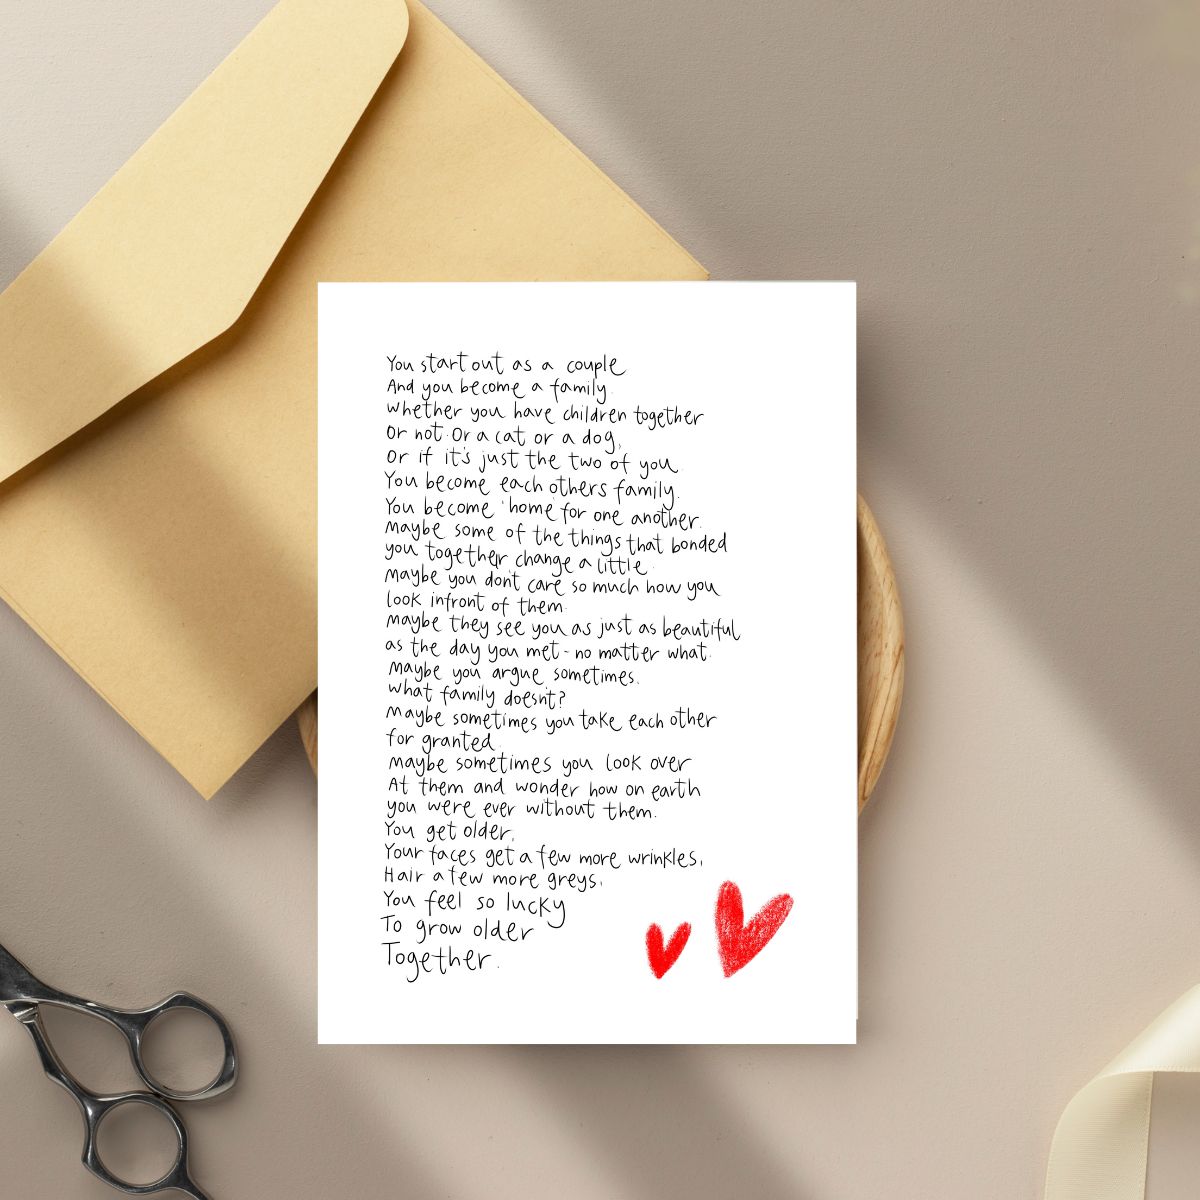 You start out as a couple
And you become a family.
Whether you have children together
Or not. Or a cat or a dog,
Or if it's just the two of you.
You become each others family.
You become 'home' for one another.
Maybe some of the things that bonded
you together, change a little.
Maybe you don't care so much how you
look infront of them.
Maybe they see you as just as beautiful
as the day you met - no matter what.
Maybe you argue sometimes.
What family doesn't?
Maybe sometimes you take each other
for granted.
Maybe sometimes you look over
At them and wonder how on earth
you were ever without them.
You get older,
Your faces get a few more wrinkles,
Hair a few more greys,
You feel so lucky
To grow older
Together.